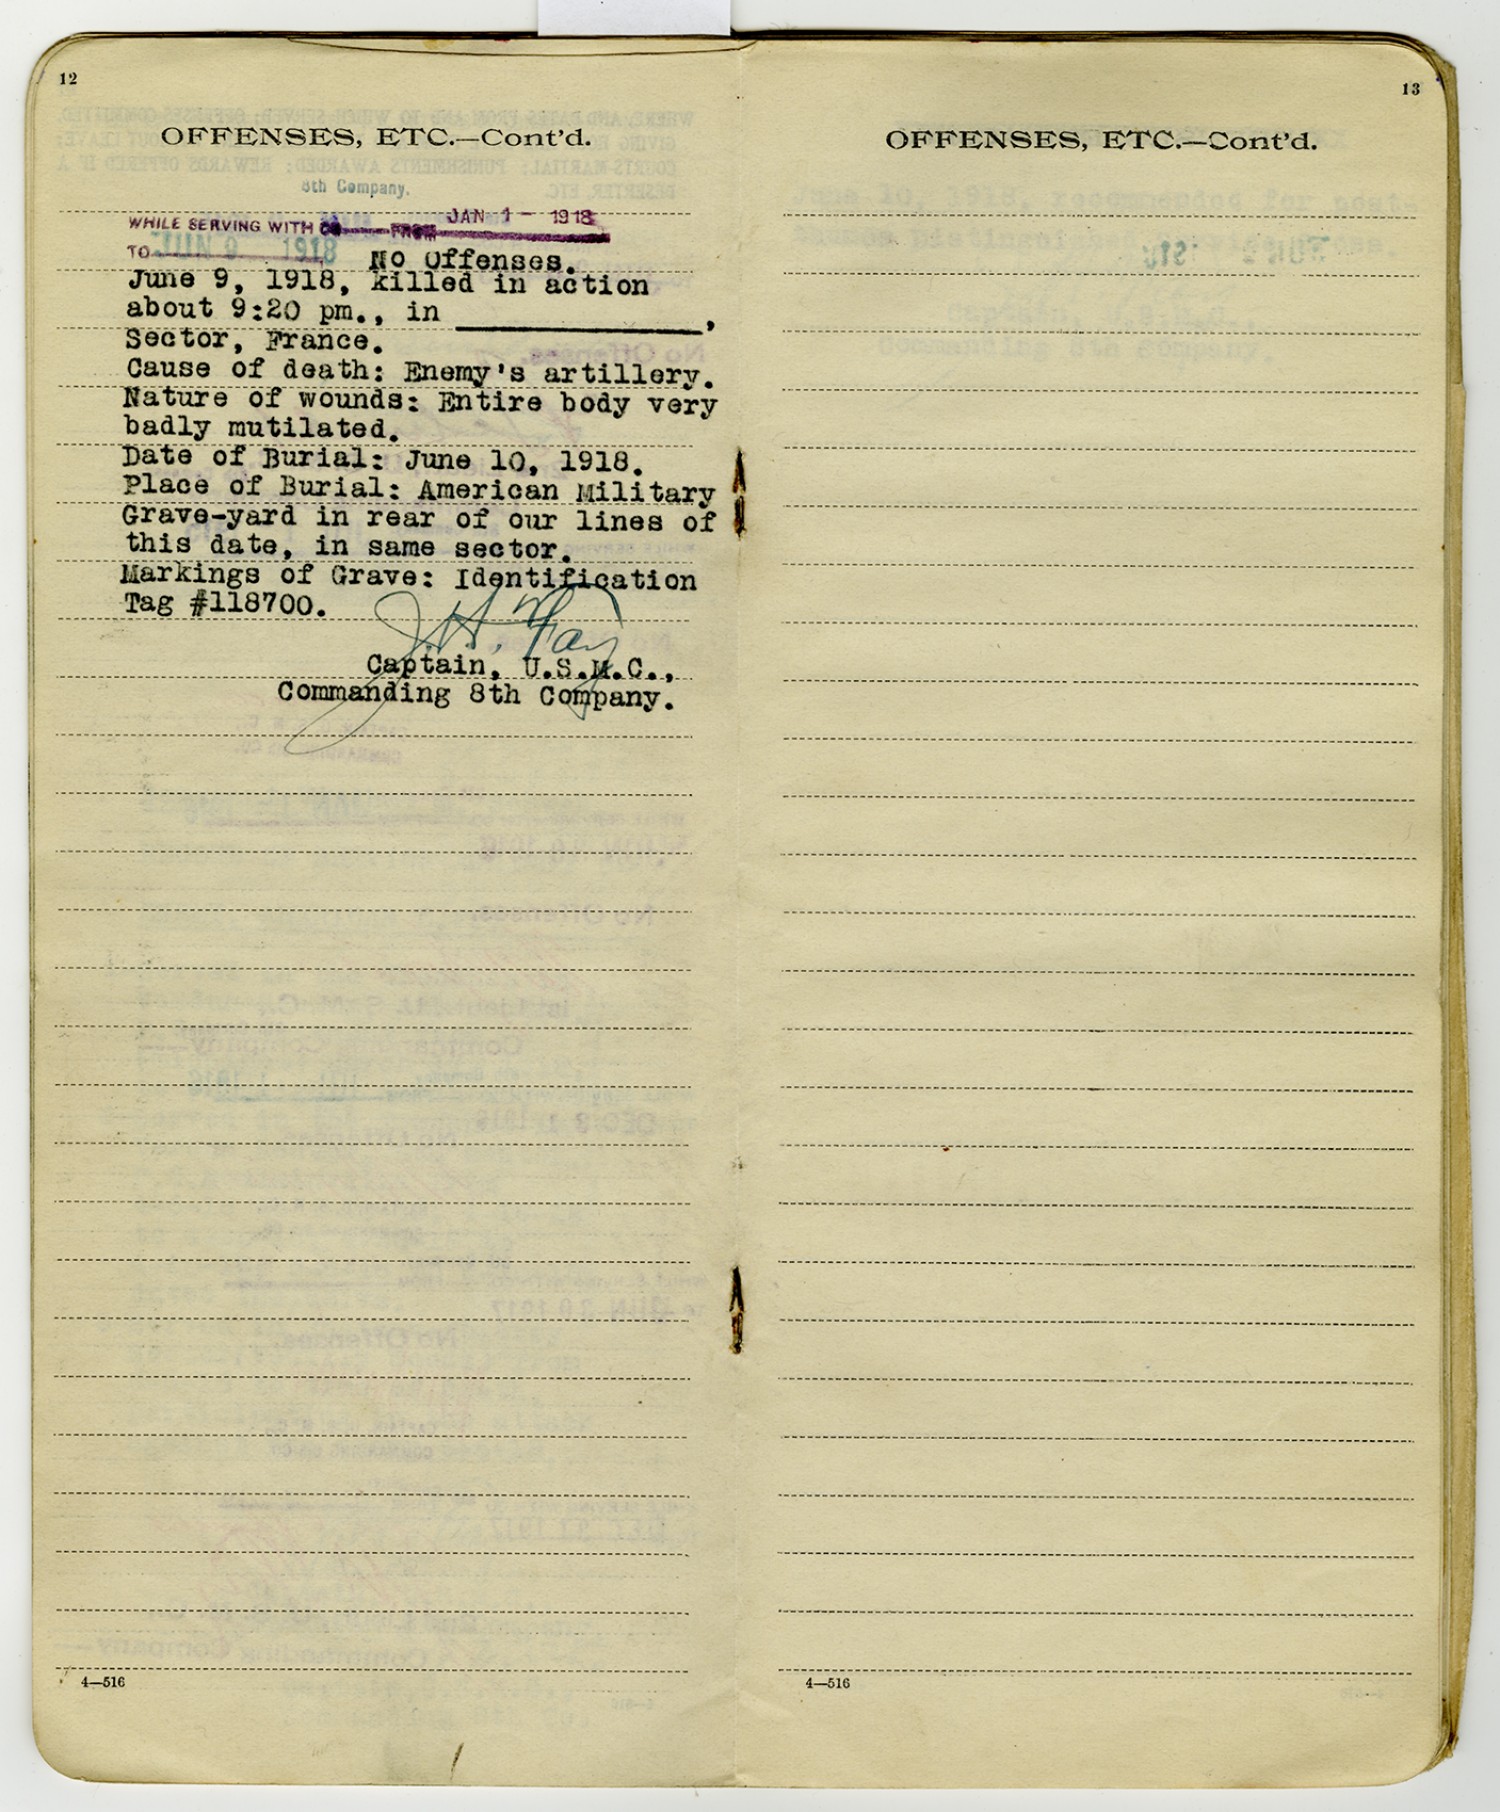 12
OFFENSES, ETC.—Cont'd.
8th Company.
WHILE SERVING WITH CO FROM JAN 1 - 1918
TO JUN 9 1918 No Offenses.
June 9, 1918, killed in action
about 9:20 pm., in ____________,
Sector, France.
Cause of death: Enemy's artillery.
Nature of wounds: Entire body very
badly mutilated.
Date of Burial: June 10, 1918.
Place of Burial: American Military
Grave-yard in rear of our lines of
this date, in same sector.
Markings of Grave: Identification
Tag #118700.
J.H. Fay
Captain, U.S.M.C.,
Commanding 8th Company.
4—516
13
OFFENSES, ETC.—Cont'd.
4—516